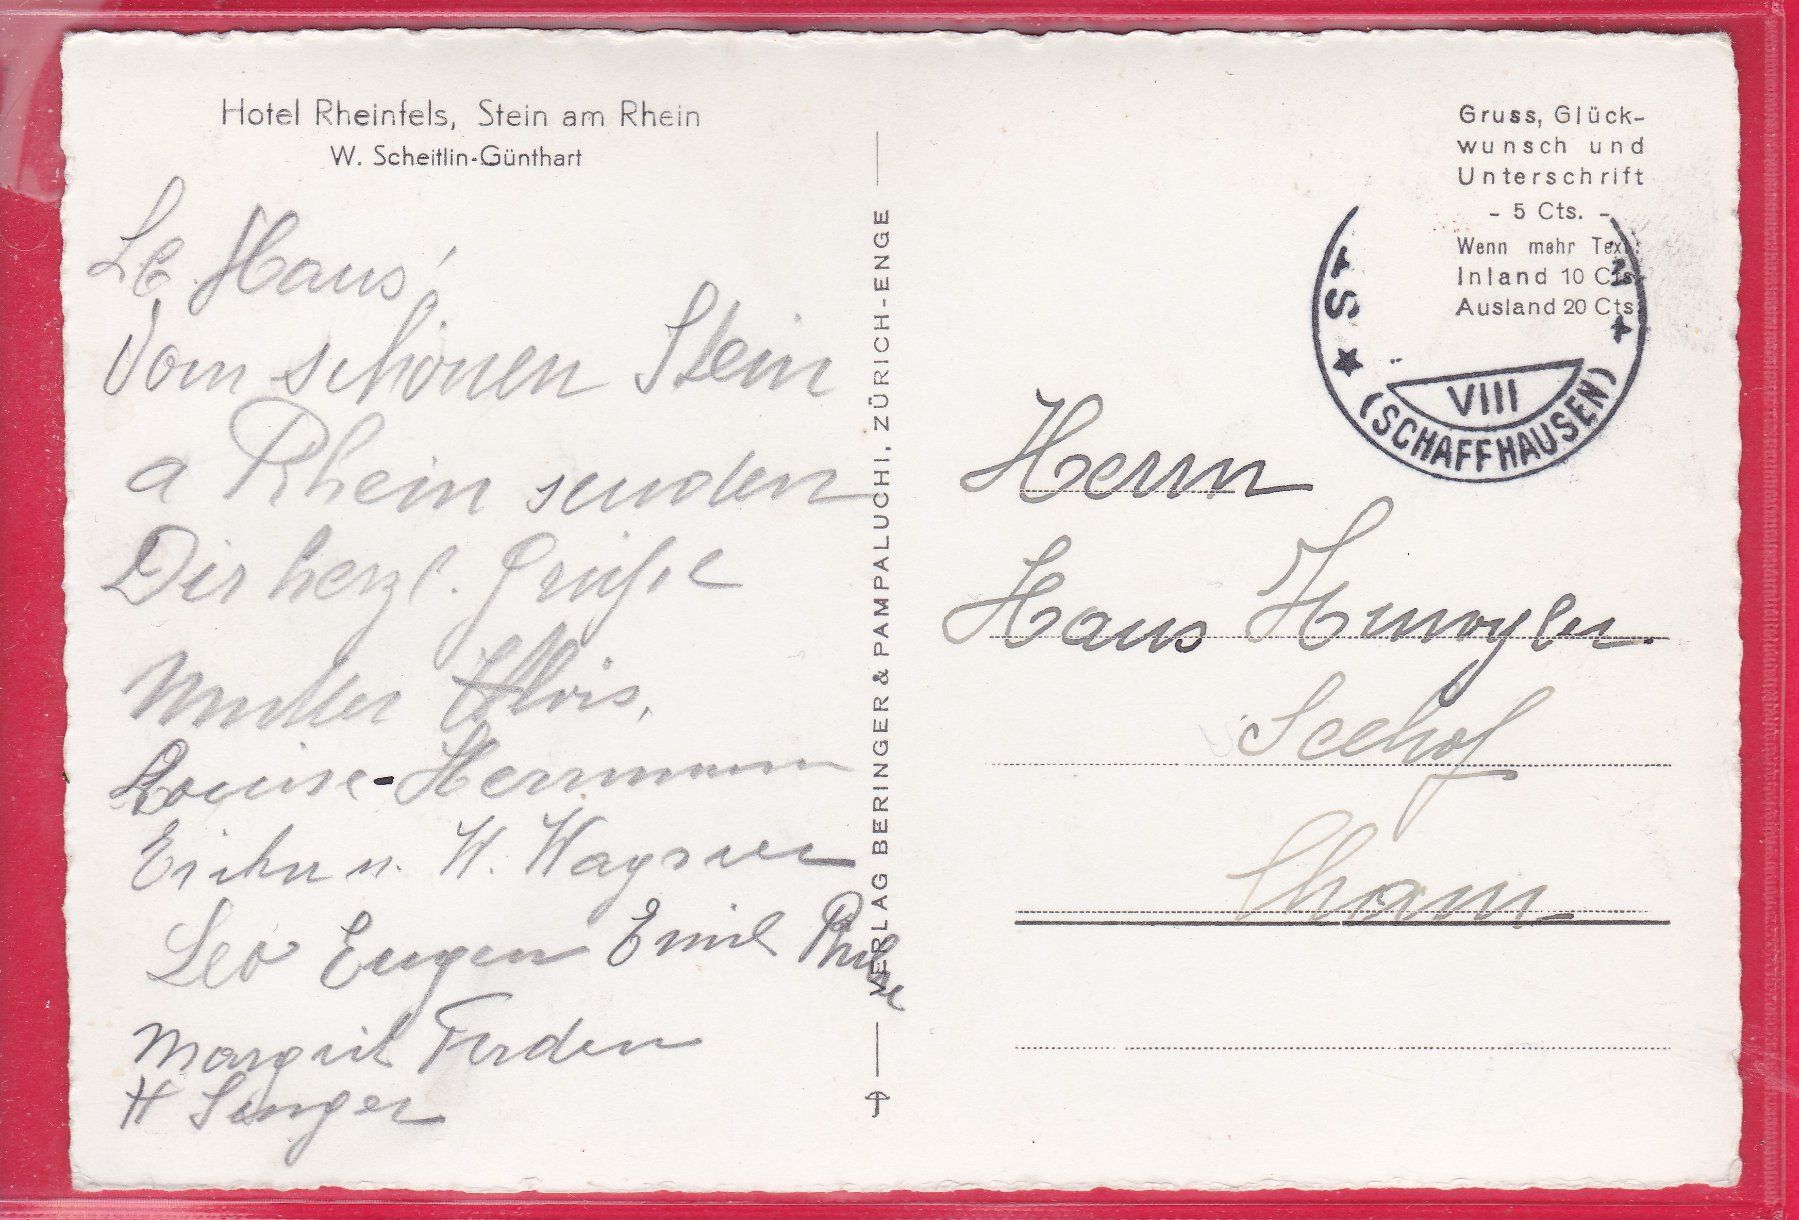 Hotel Rheinfels, Stein am Rhein
W. Scheitlin-Günthart
Lb. Hans!
Vom schönen Stein
a Rhein senden
Dir herzl. Grüße
Mutter Alois,
Louise-Herrmann
u. W. Wagner
Leo Eugen Emil
Margrit
H Singer
VERLAG BERINGER & PAMPALUCHI, ZÜRICH-ENGE
Gruss, Glück-
wunsch und
Unterschrift
- 5 Cts. -
Wenn mehr Text:
Inland 10 Cts.
Ausland 20 Cts.
VIII
(SCHAFFHAUSEN)
Herrn
Hans
Seehof
Cham